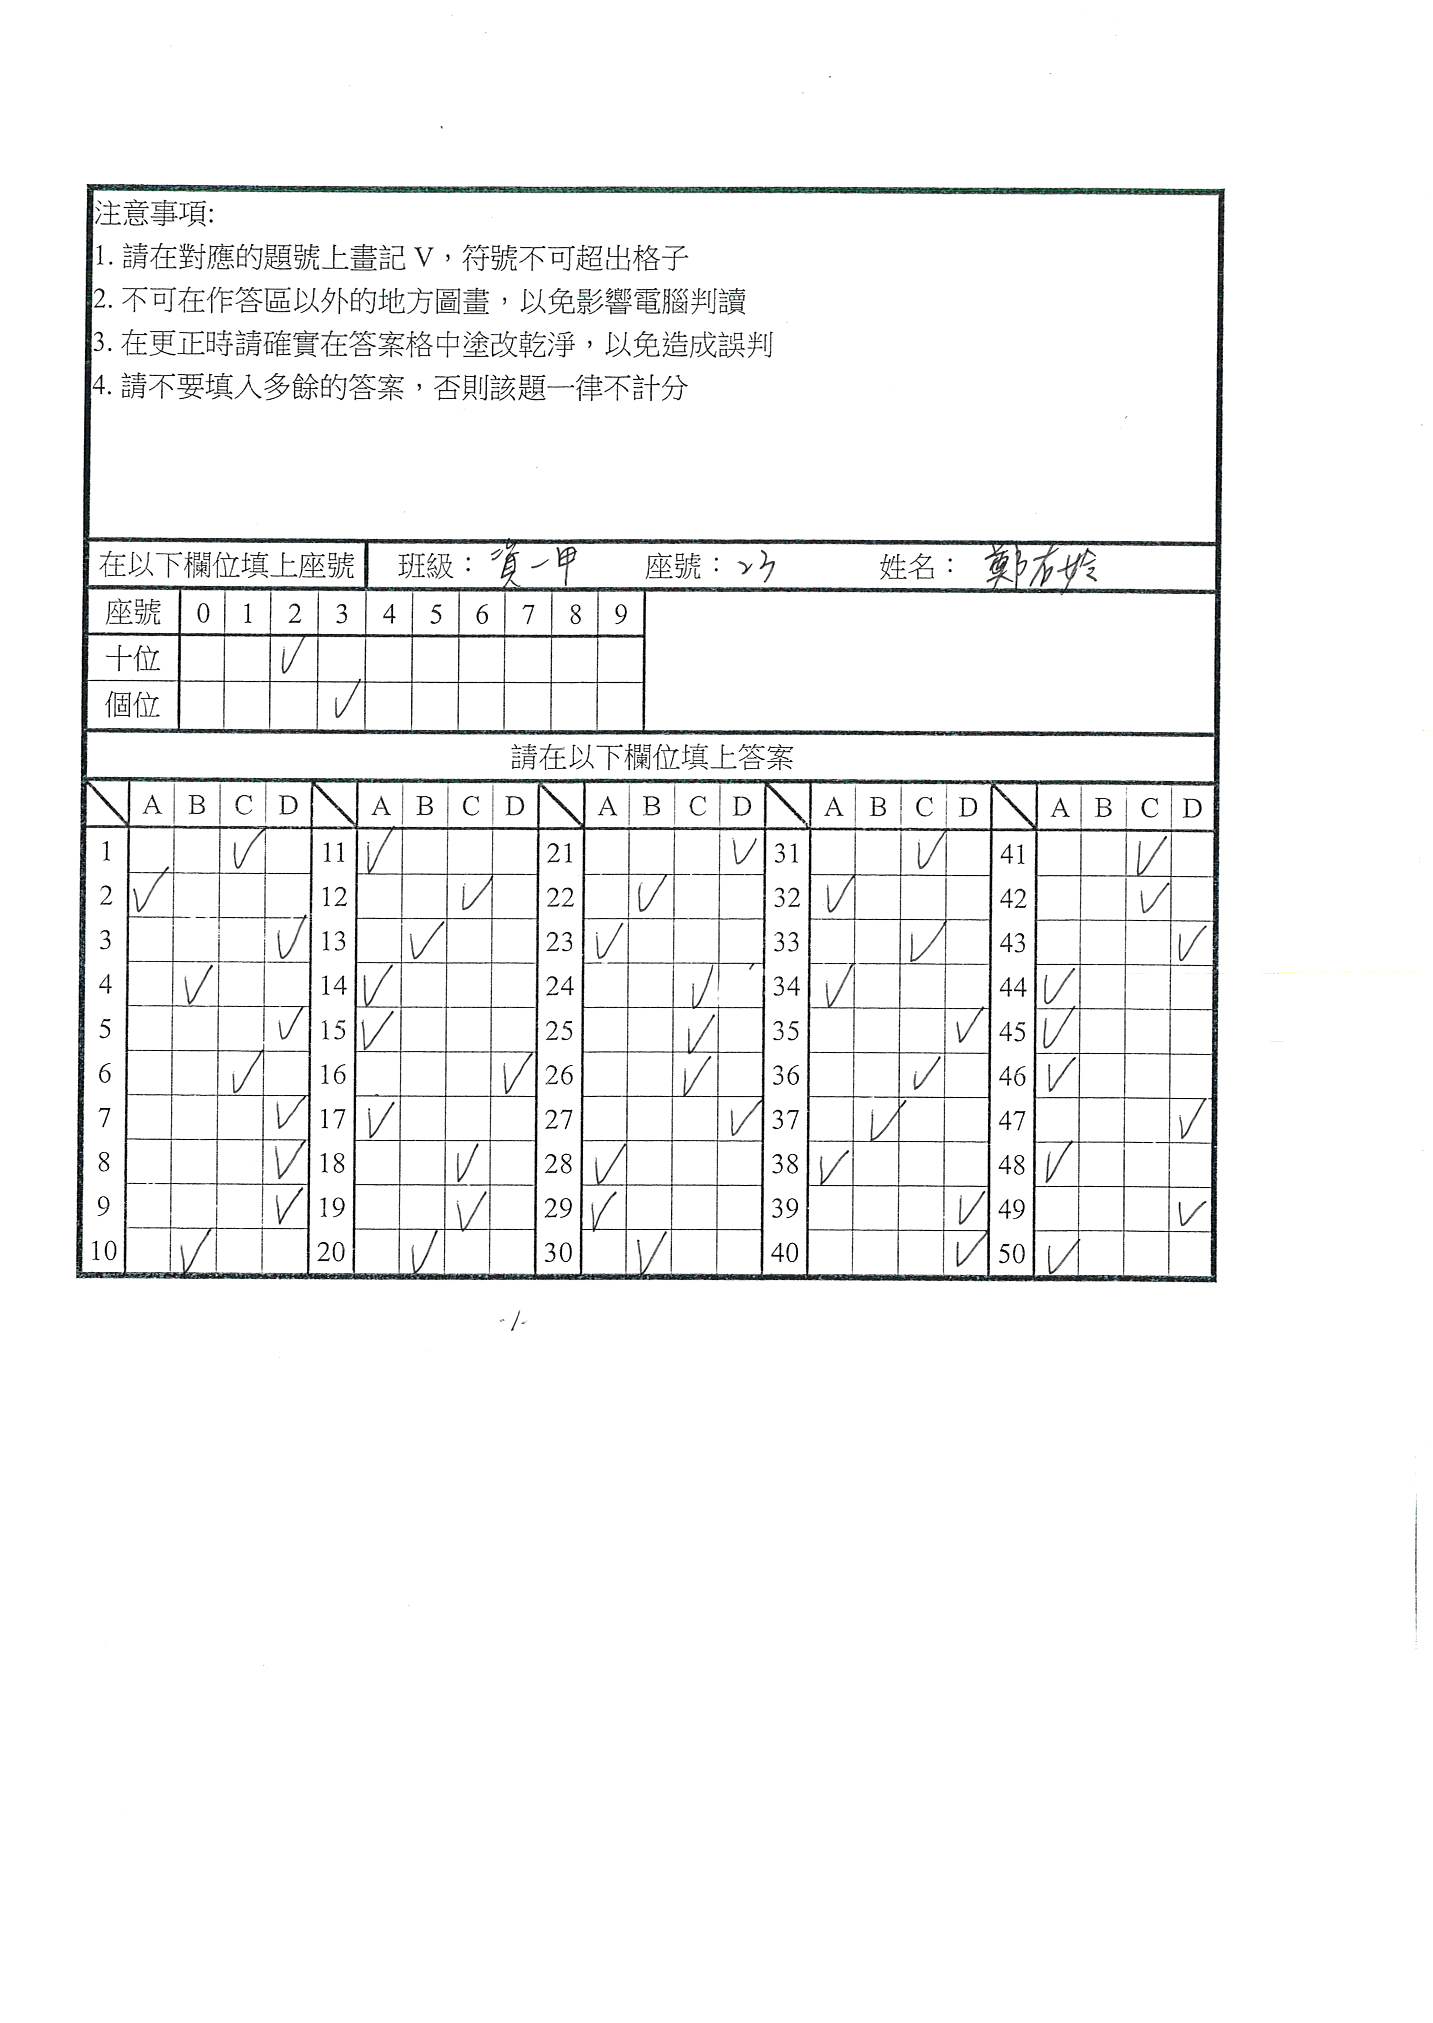 注意事項:
1. 請在對應的題號上畫記 V，符號不可超出格子
2. 不可在作答區以外的地方圖畫，以免影響電腦判讀
3. 在更正時請確實在答案格中塗改乾淨，以免造成誤判
4. 請不要填入多餘的答案，否則該題一律不計分
在以下欄位填上座號 班級： 資一甲 座號：23 姓名： 鄭有婷
座號 0 1 2 3 4 5 6 7 8 9
十位 V
個位 V
請在以下欄位填上答案
A B C D A B C D A B C D A B C D A B C D
1 V 11 V 21 V 31 V 41 V
2 V 12 V 22 V 32 V 42 V
3 V 13 V 23 V 33 V 43 V
4 V 14 V 24 V 34 V 44 V
5 V 15 V 25 V 35 V 45 V
6 V 16 V 26 V 36 V 46 V
7 V 17 V 27 V 37 V 47 V
8 V 18 V 28 V 38 V 48 V
9 V 19 V 29 V 39 V 49 V
10 V 20 V 30 V 40 V 50 V
-1-